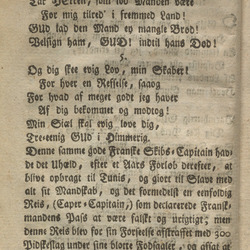 Lar HErren, som lod Manden være
For mig tilred' i fremmed Land!
GUd lad den Mand ey mangle Brod!
Velsign ham, GUD! indtil hans Dod!
5.
Og dig skee evig Lov, min Skaber!
For hver en Refselse, saaog
For hvad af meget gode jeg haver
Af dig bekommet og modtog!
Min Siæl skal evig love dig,
Tre-eenig GUd i Himmerig.
Denne samme gode Franske Skibs-Capitain hav-
de det Uheld, efter et Aars Forlob derefter, at
blive opbragt til Tunis, og giort til Slave med
alt sit Mandskab, og det formedelst en eenfoldig
Reis, (Caper-Capitain,) som declarerede Fransk-
mandens Pass at være falskt og urigtigt; men
denne Reis blev for sin Forseelse afstraffet med 300
Pidskeslag under sine blotte Fodsaaler, og afsat